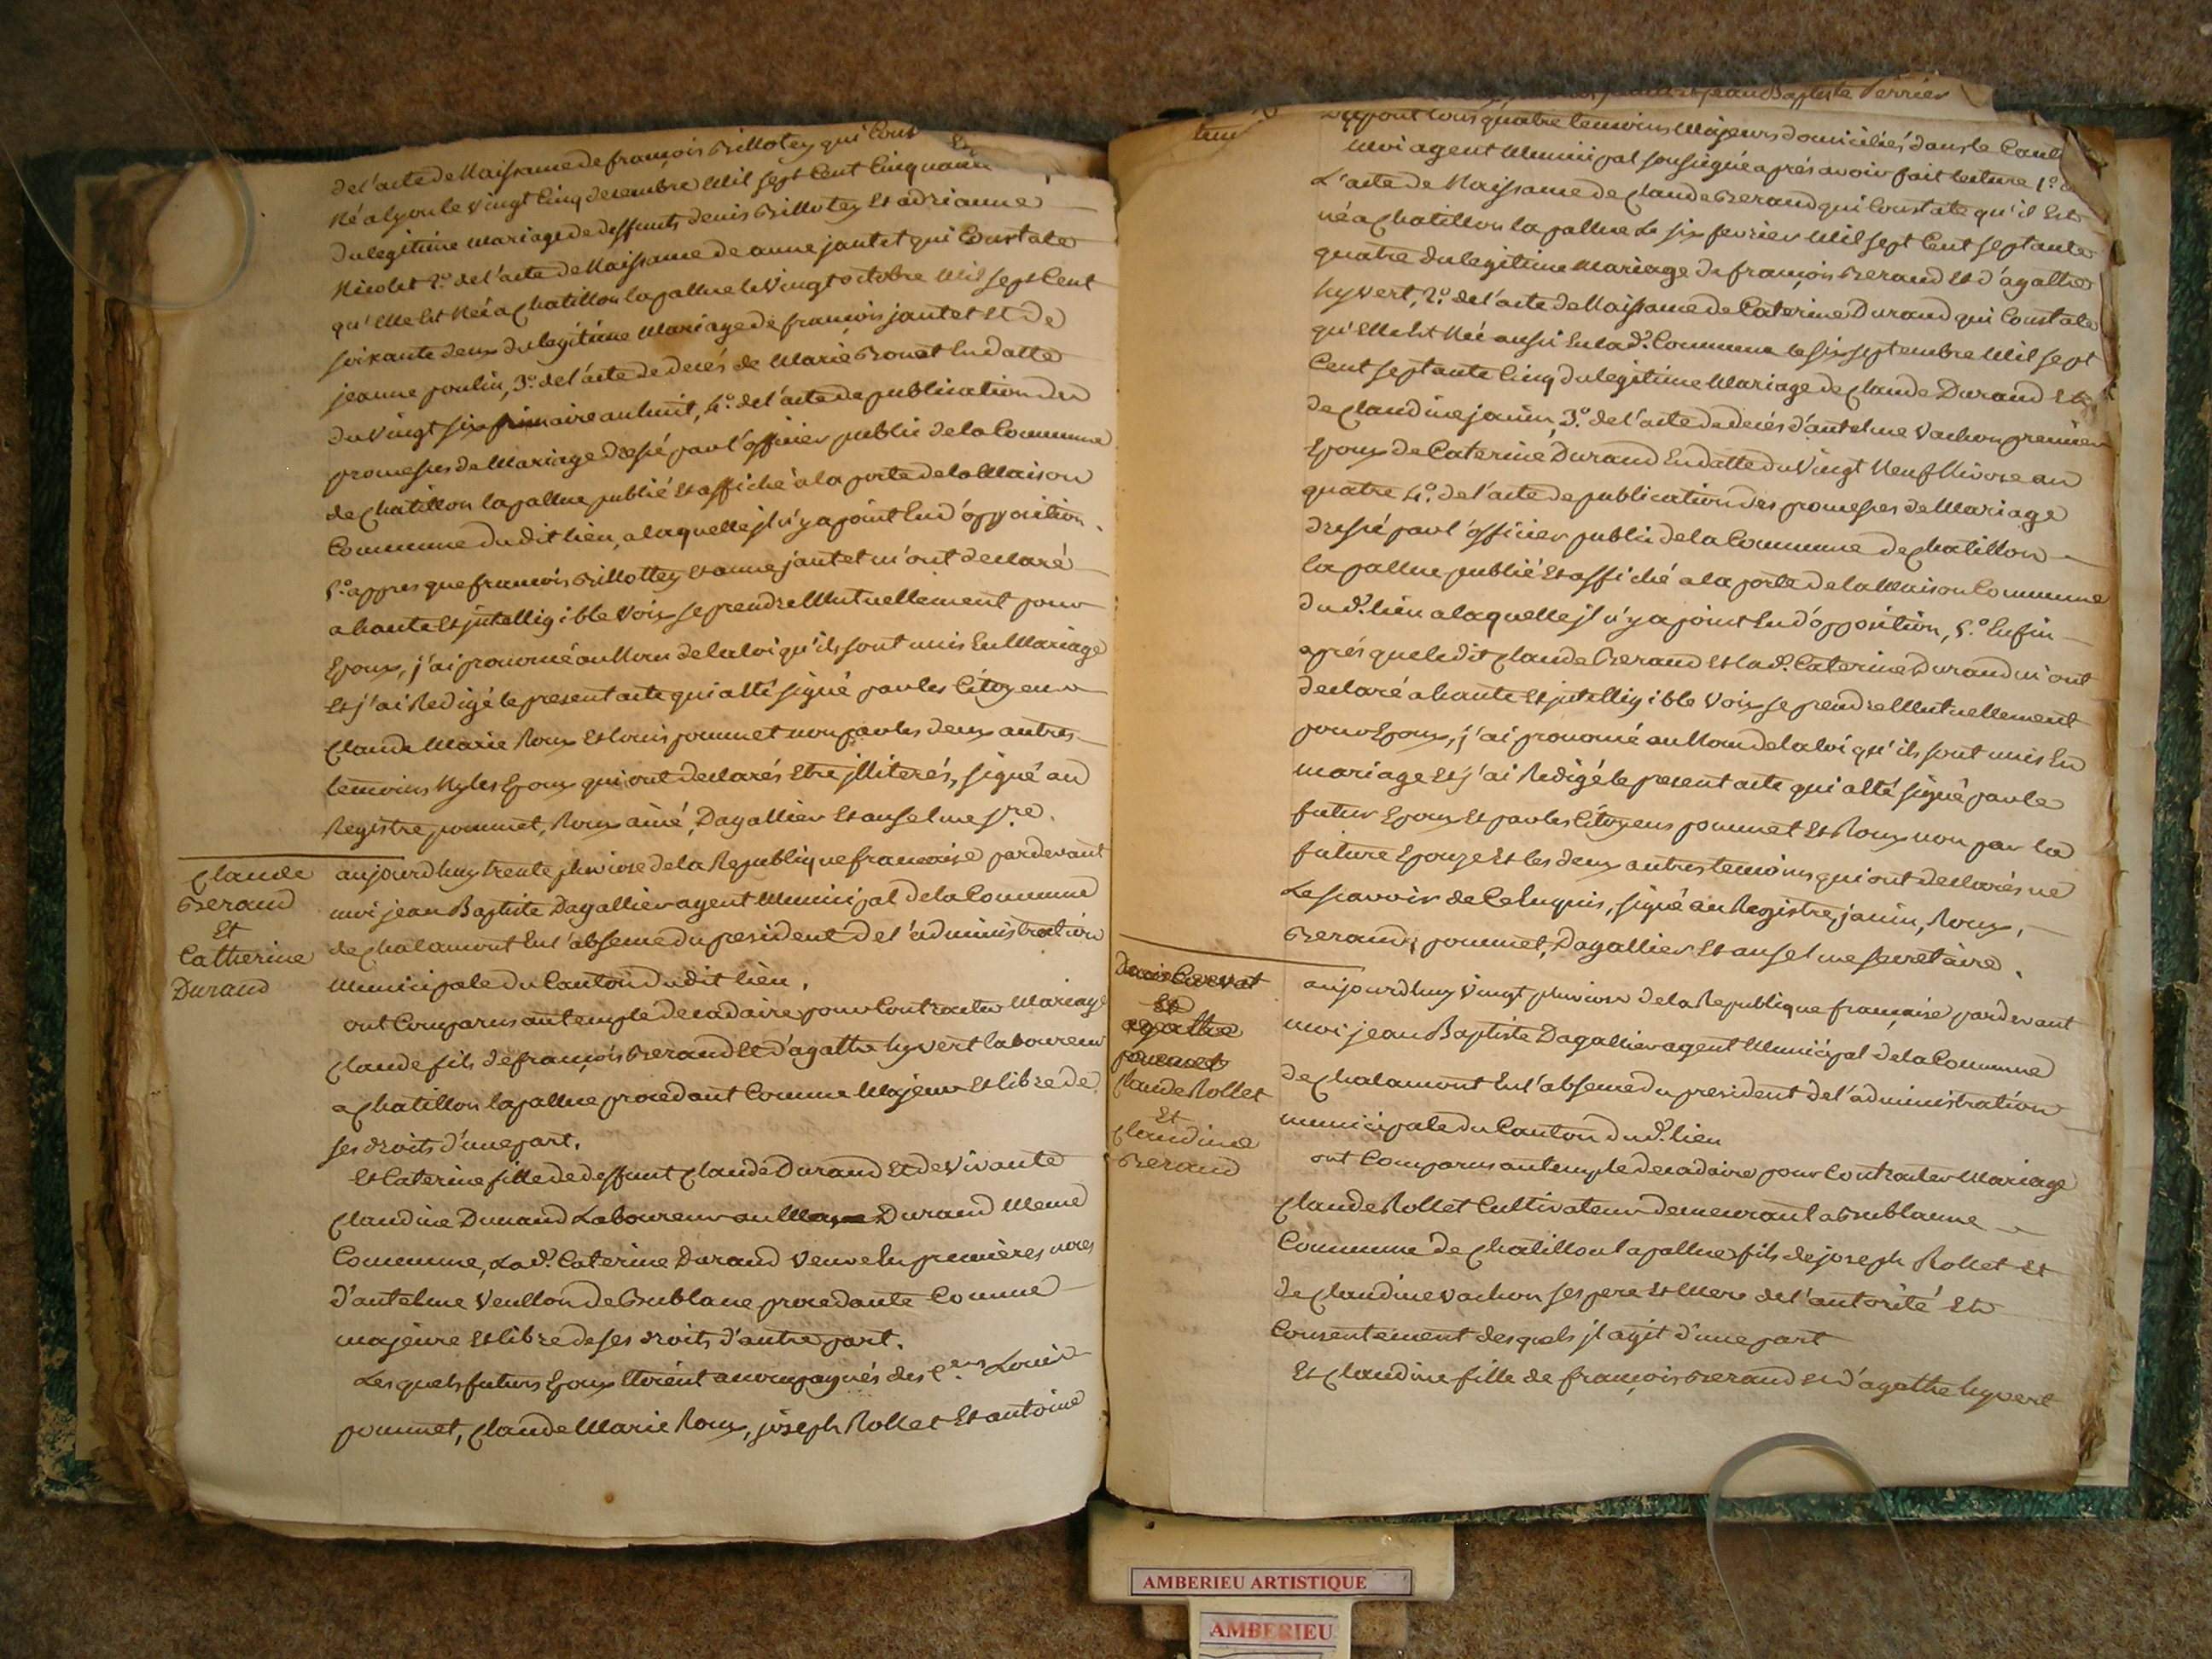 de l'acte de Naissance de françois Brillotey qui Const
Né a lyon le Vingt Cinq decembre Mil sept Cent Cinquante
du legitime mariage de deffunts denis Brillotey Et adrianne
Nicolet 2.º de l'acte de Naissance de anne jantet qui Constate
qu'elle Est Née a Chatillon lapallue le Vingt octobre Mil sept Cent
soixante deux du legitime Mariage de françois jantet Et de
jeanne poulin, 3.º de l'acte de decés de Marie Bronet En datte
du Vingt six frimaire an huit, 4.º de l'acte de publication des
promesses de Mariage dressé par l'officier public de la Commune
de Chatillon lapallue publié Et affiché a la porte de la Maison
Commune dudit lieu, a laquelle jl n'y a point Eu d'opposition.
5.º appres que françois Brillottey Et anne jantet m'ont declaré
a haute Et jntelligible Voix se prendre Mutuellement pour
Epoux, j'ai prononcé au Nom de la loi qu'ils sont unis En Mariage
Et j'ai Redigé le present acte qui a Eté signé par les Citoyens
Claude Marie Roux Et Louis pommet non par les deux autres
temoins Ny les Epoux qui ont declarés Etre jlliterés, signé au
Registre pommet, Roux ainé, Dagallier Et anselme s.re.
Claude
Berand
Et
Catherine
Durand
aujourdhuy trente pluviose de la Republique francaise pardevant
moi jean Baptiste Dagallier agent Municipal de la Commune
de Chalamont En l'absence du president de l'administration
Municipale du Canton dudit lieu,
ont Comparus au temple decadaire pour Contracter Mariage
Claude fils de françois Berand Et d'agathe hyvert laboureur
a Chatillon lapallue procedant Comme Majeur Et libre de
ses droits d'une part,
Et Caterine fille de deffunt Claude Durand Et de Vivante
Claudine Durand Laboureur au Durand Meme
Commune, La d.e Caterine Durand Veuve En premières
d'antelme Veullon de Bublane procedante Comme
majeure Et libre de ses droits d'autre part.
Lesquels futurs Epoux Etoient accompagnés des C.ens Louis
pommet, Claude Marie Roux, joseph Rollet Et antoine
jean Baptiste Perrier
Dupont tous quatre temoins Majeurs domiciliés dans le Cant
Moi agent Municipal soussigné aprés avoir fait lecture 1.º
L'acte de Naissance de Claude Berand qui Constate qu'il Est
né a Chatillon la pallue Le six fevrier Mil sept Cent septante
quatre du legitime Mariage de françois Berand Et d'agathe
hyvert, 2.º de l'acte de Naissance de Caterine Durand qui Constate
qu'Elle Est Née aussi En la d.e Commune le six septembre Mil sept
Cent septante Cinq du legitime Mariage de Claude Durand Et
de Claudine janin, 3.º de l'acte de decés d'antelme Vachon premier
Epoux de Caterine Durand En datte du Vingt Neuf Nivose an
quatre 4.º de l'acte de publication des promesses de Mariage
dressé par l'officier public de la Commune de Chatillon
la pallue publié Et affiché a la porte de la Maison Commune
du d.t lieu a laquelle jl n'y a point Eu d'opposition, 5.º Enfin
aprés que ledit Claude Berand Et la d.e Caterine Durand m'ont
declaré a haute Et jntelligible Voix se prendre Mutuellement
pour Epoux, j'ai prononcé au Nom de la loi qu'ils sont unis En
mariage Et j'ai Redigé le present acte qui a Eté signé par le
futur Epoux Et par les Citoyens pommet Et Roux non par la
future Epouze Et les deux autres temoins qui ont declarés ne
Le scavoir de Ce Enquis, signé au Registre, janin, Roux,
Berand, pommet, Dagallier Et anselme secretaire.
Denis Cuervat
Et
agathe
pommet
Claude Rollet
Et
Claudine
Berand
aujourdhuy Vingt pluviose de la Republique française pardevant
moi jean Baptiste Dagallier agent Municipal de la Commune
de Chalamont En l'absence du president de l'administration
municipale du Canton du d.t lieu
ont Comparus au temple decadaire pour Contracter Mariage
Claude Rollet Cultivateur demeurant a Bublanne
Commune de Chatillon lapallue fils de joseph Rollet Et
de Claudine Vachon ses pere Et Mere de l'autorité Et
Consentement desquels jl agit d'une part
Et Claudine fille de françois Berand Et d'agathe hyvert
AMBERIEU ARTISTIQUE
AMBERIEU